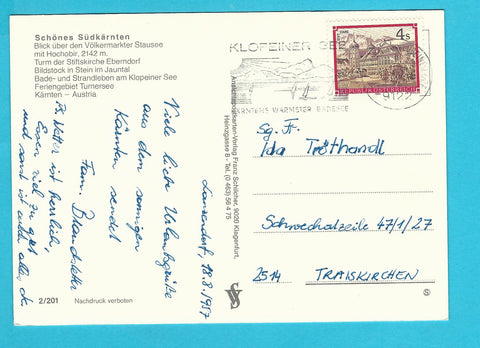 Schönes Südkärnten
Blick über den Völkermarkter Stausee
mit Hochobir, 2142 m.
Turm der Stiftskirche Eberndorf
Bildstock in Stein im Jauntal
Bade- und Strandleben am Klopeiner See
Feriengebiet Turnersee
Kärnten – Austria
18.8.1987
Viele liebe Urlaubsgrüße
aus dem sonnigen
Kärnten sendet
Fam. Brandstetter
Ps. Wetter ist herrlich,
Essen viel zu gut
und sonst ist auch alles ok.
2/201 Nachdruck verboten
Ansichtskarten-Verlag Franz Schilcher, 9020 Klagenfurt,
Heinzgasse 8 · Tel. (0 463) 56 4 75
KLOPEINER SEE
KÄRNTENS WÄRMSTER BADESEE
9122
4 S
REPUBLIK ÖSTERREICH
Sg. Fr.
Ida Tröthandl
Schwechatzeile 47/1/27
2514 TRAISKIRCHEN